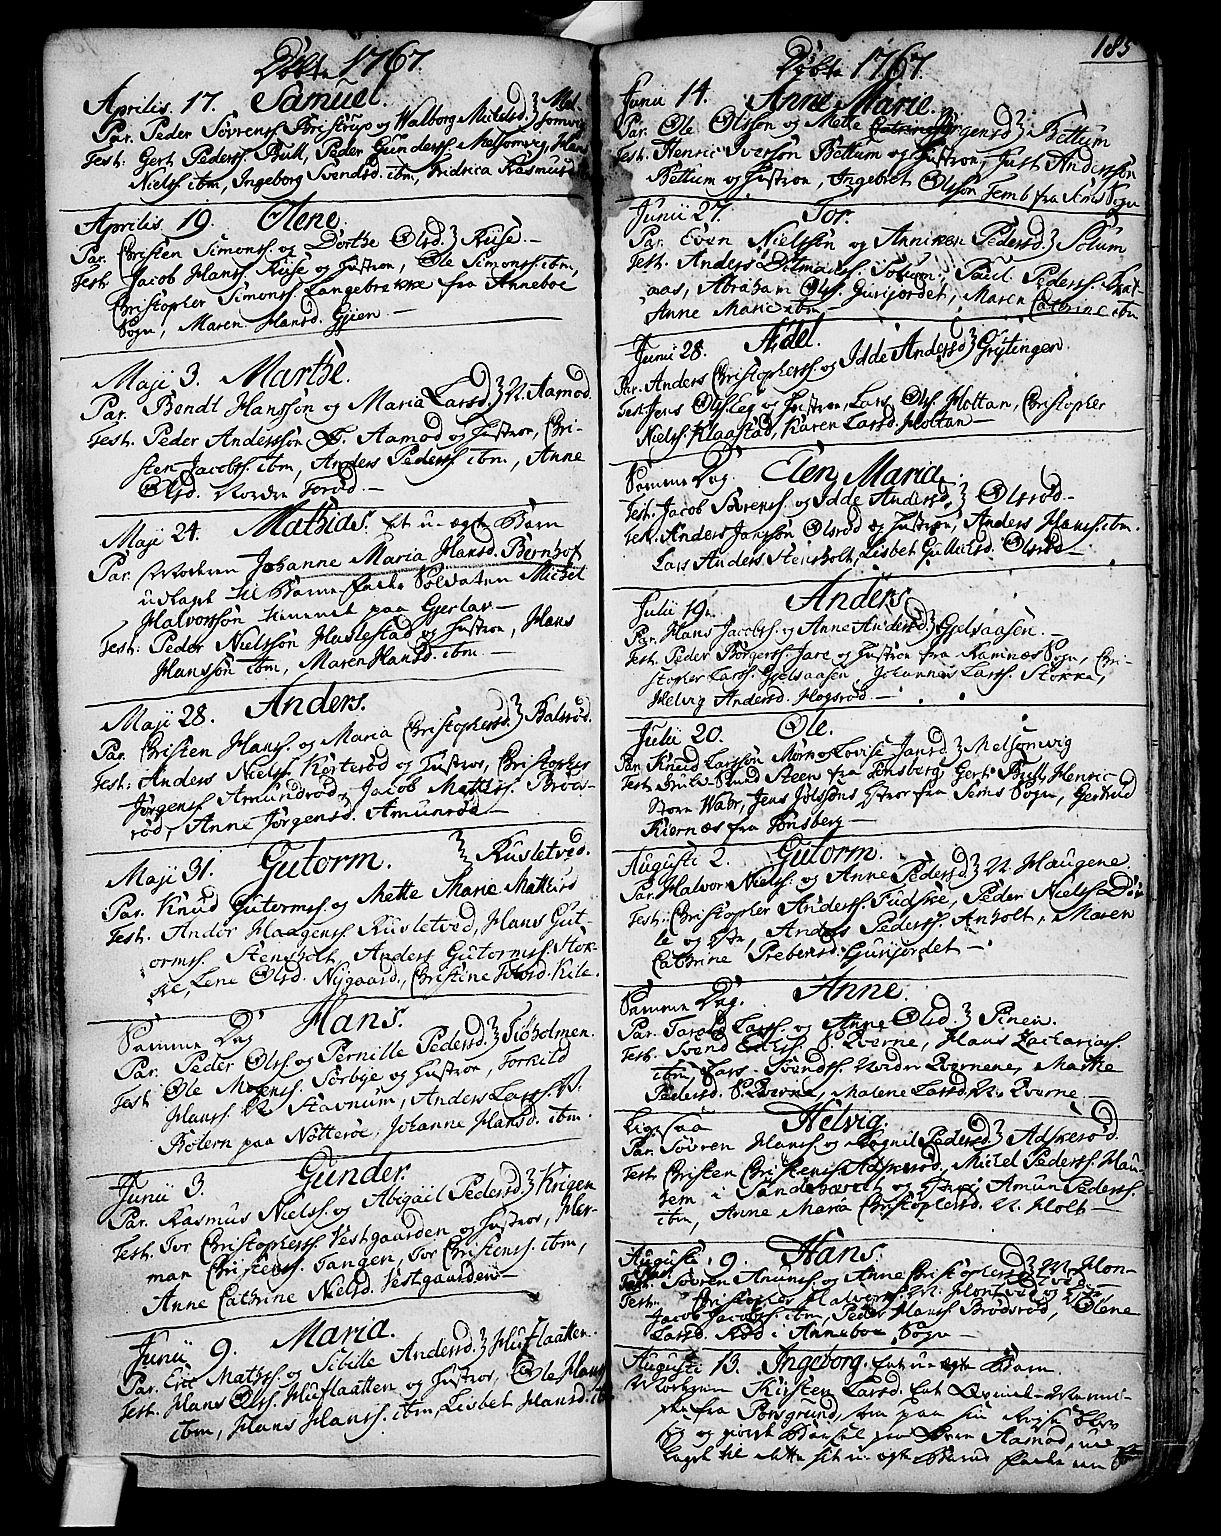 Døbte 1767.
Aprilis 17. Samuel.
Par. Peder Sövrenss. Bristrup og Walborg Nielsd. Mel-
somvig
Test. Gert Pederss. Bull, Peder Gunderss. Melsomvig, Hans
Nielss. ibm, Ingeborg Svendsd. ibm, Fridrica Rasmusd.
Aprilis 19. Olene.
Par. Christen Simonss. og Dorthe Olsd. Ruse.
Test. Jacob Hanss. Ruse og Hustroe, Ole Simonss. ibm,
Christopher Simonss. Langebrekke fra Anneboe
Sogn, Maren Hansd. Gjien
Maji 3. Marthe.
Par. Bendt Hansson og Maria Larsd. N. Aamod.
Test. Peder Anderssön S. Aamod og Hustroe, Chri-
sten Jacobss. ibm, Anders Pederss. ibm, Anne
Olsd. Nordre Forød.
Maji 24. Mathias. Et u-ægte Barn
Par. Moderen Johanne Maria Hansd. Bernhof
udlagt til Barne-Fader Soldaten Michel
Halvorssön tienner paa Gjerlav
Test. Peder Nielssön Haslestad og Hustroe, Hans
Hanssön ibm, Maren Hansd. ibm.
Maji 28. Anders.
Par. Christen Hanss. og Maria Christophersd. Balsrød.
Test. Anders Nielss. Korterød og Hustroe, Christopher
Jörgenss. Amundrød, Jacob Mathiss. Broes-
rød, Anne Jörgensd. Amunrød
Maji 31. Gutorm. Rusletved.
Par. Knud Gutormss. og Mette Marie Mathisd
Test. Andor Haagenss. Rusletved, Hans Gut-
ormss. Stensholt, Anders Gutormss. Stok-
ke, Lene Olsd. Nygaard, Christine Kile.
Samme Dag Hans.
Par. Peder Olss. og Pernille Pedersd. Siøholmen.
Test. Ole Mogenss. Sørbye og Hustroe, Torkild
Hanss. Stavnum, Anders Larss. V.
Bolern paa Nötteröe, Johanne Hansd. ibm.
Junii 3. Gunder.
Par. Rasmus Nielss. og Abigael Pedersd. Krigen
Test. Tor Christopherss. Vestgaarden og Hustroe, Her-
man Christenss. Tangen, Tor Christenss. ibm,
Anne Cathrine Nielsd. Vestgaarden
Junii 9. Maria.
Par. Eric Mathss. og Sibille Andersd. Husflaatten.
Test. Hans Olss. Husflaatten og Hustroe, Ole Hanss
ibm, Hans Hanss. ibm, Lisbet Hansd. ibm
185
Døbte 1767.
Junii 14. Anne Marie.
Par. Ole Olsson og Mette Jörgensd. Bettum
Test. Henric Iverson Bettum og Hustroe, Just Anderssön
Bettum og Hustroe, Ingebret Olssön Jemb fra Sems Sogn
Junii 27. Tor.
Par. Even Nielssön og Anniken Pedersd. Solum
Test. Anders Ditmanss. Solum, Paul Pederss.
aas, Abraham Olss. Gurijordet, Maren Cathrine ibm
Anne Marie ibm
Junii 28. Adel.
Par. Anders Christopherss. og Idde Andersd. Grytingen.
Test. Jens Olss. Eeg og Hustroe, Lars Olss. Holtan, Christopher
Nielss. Klaastad, Karen Larsd. Holtan
Samme Dag. Elen Maria.
Test. Jacob Sövrenss. og Idde Andersd. Olsrød
Test. Anders Janssön Olsrød og Hustroe, Anders Hanss. ibm.
Lars Anderss. Stensholt, Lisbet Gulliksd. Olsrød
Julii 19. Anders.
Par. Hans Jacobss. og Anne Andersd. Gjelsaasen.
Test. Peder Börgerss. Jare og Hustroe fra Ramnæs Sogn, Chri-
stopher Larss. Gjelsaasen, Johannes Larss. Stokke,
Helvig Andersd. Hogsrød.
Julii 20. Ole.
Par. Knud Larssön Mørn og Lovise Jansd. Melsomvig
Test. Steen fra Tönsberg, Gert Bull, Henric
Storm Wabr, Jens Jölssons Hstroe fra Sems Sogn, Gertrud
Kiernæs fra Tönsberg
Augusti 2. Gutorm.
Par. Halvor Nielss. og Anne Pedersd. N. Haugene
Test. Christopher Anderss. Fuske, Peder Nielssön
le og Hstr, Anders Pederss. Anholt, Maren
Cathrine Prebensd. Gurijordet
Samme Dag. Anne.
Par. Tarald Larss. og Anne Olsd. Pinen.
Test. Svend S. Qverne, Hans Zachariass.
ibm, Lars Svendss. Nordre Qvernene, Marthe
Pedersd. S. Qverne, Malene Larsd. N. Qverne.
Ligesaa Helvig.
Par. Sövren Hanss. og Pedersd. Adskerød.
Test. Christen Christenss. Adskerød, Michel Pederss. Hau-
gem i Sandehæred og Hstroe, Amun Pederss.
ibm, Anne Maria Christophersd. N. Holt
Augusti 9. Hans.
Par. Sövren Anunss. og Anne Christophersd. N. Hon-
tvedt
Test. Christopher Halvorss. N. Hontved og Hstr
Jacob Jacobss. ibm, Peder Hanss. Brödsrød, Olene
Larsd. Rød i Anneboe Sogn
Augusti 13. Ingeborg. Et u-ægte Barn
Moderen Kirsten Larsd. Et Qvinde-Menni-
ske fra Porsgrund, som paa sin Reyse blev
syg og giorde Barsel paa Aamod, ud-
lagde til dette sit u-ægte Barns Fader een